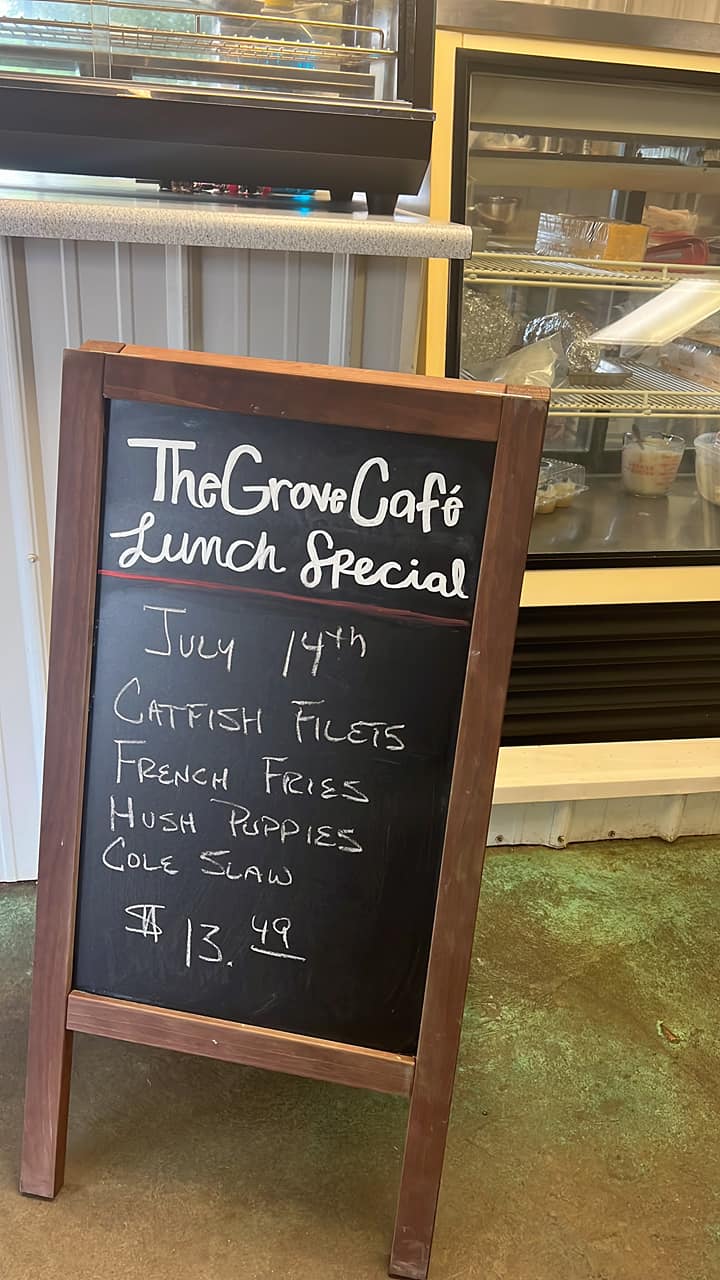 The Grove Café
Lunch Special
July 14th
Catfish Filets
French Fries
Hush Puppies
Cole Slaw
$13.49